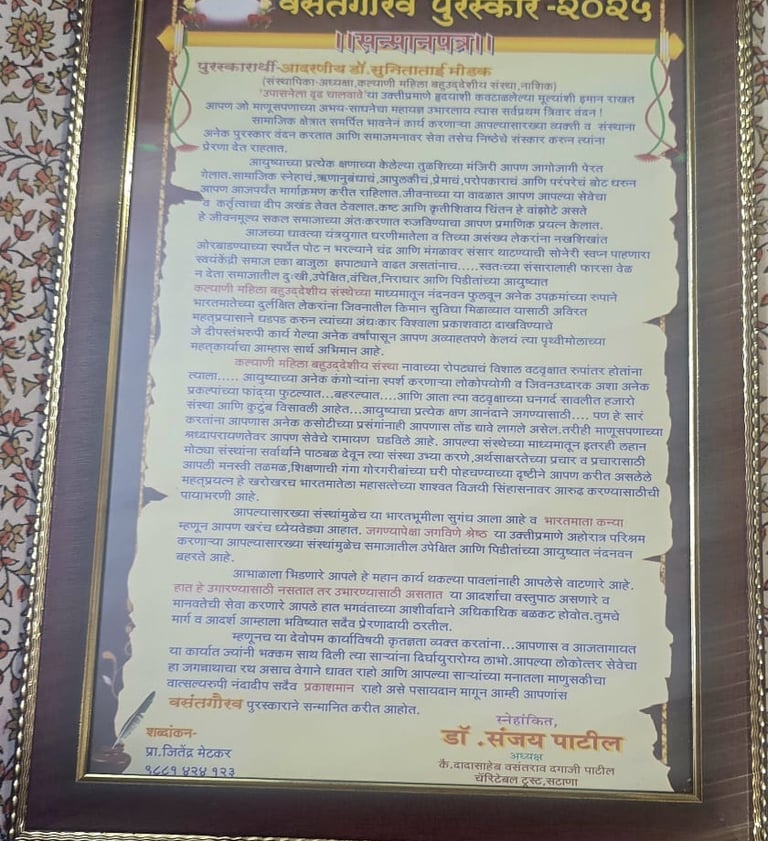 वसंतगौरव पुरस्कार -२०२५
||सन्मानपत्र||
पुरस्कारार्थी-आदरणीय डॉ.सुनिताताई मोडक
(संस्थापिका-अध्यक्षा,कल्याणी महिला बहुउद्देशीय संस्था,नाशिक)
'उपासनेला दृढ चालवावे' या उक्तीप्रमाणे हृदयाशी कवटाळलेल्या मूल्यांशी इमान राखत
आपण जो माणूसपणाच्या अभय-साधनेचा महायज्ञ उभारलाय त्यास सर्वप्रथम त्रिवार वंदन !
सामाजिक क्षेत्रात समर्पित भावनेनं कार्य करणाऱ्या आपल्यासारख्या व्यक्ती व संस्थाना
अनेक पुरस्कार वंदन करतात आणि समाजमनावर सेवा तसेच निष्ठेचे संस्कार करुन त्यांना
प्रेरणा देत राहतात.
आयुष्याच्या प्रत्येक क्षणाच्या केलेल्या तुळशिच्या मंजिरी आपण जागोजागी पेरत
गेलात.सामाजिक स्नेहाचं,ऋणानुबंधाचं,आपुलकीचं,प्रेमाचं,परोपकाराचं आणि परंपरेचं बोट धरुन
आपण आजपर्यंत मार्गाक्रमण करीत राहिलात.जीवनाच्या या वादळात आपण आपल्या सेवेचा
व कर्तृत्वाचा दीप अखंड तेवत ठेवलात.कष्ट आणि कृतीशिवाय चिंतन हे वांझोटे असते
हे जीवनमूल्य सकल समाजाच्या अंतःकरणात रुजविण्याचा आपण प्रमाणिक प्रयत्न केलात.
आजच्या धावत्या यंत्रयुगात धरणीमातेला व तिच्या असंख्य लेकरांना नखशिखांत
ओरबाडण्याच्या स्पर्धेत पोट न भरल्याने चंद्र आणि मंगळावर संसार थाटण्याची सोनेरी स्वप्न पाहणारा
स्वयंकेंद्री समाज एका बाजुला झपाट्याने वाढत असतांनाच.....स्वतःच्या संसारालाही फारसा वेळ
न देता समाजातील दुःखी,उपेक्षित,वंचित,निराधार आणि पिडीतांच्या आयुष्यात
कल्याणी महिला बहुउद्देशीय संस्थेच्या माध्यमातून नंदनवन फुलवून अनेक उपक्रमांच्या रुपाने
भारतमातेच्या दुर्लक्षित लेकरांना जिवनातील किमान सुविधा मिळाव्यात यासाठी अविरत
महत्प्रयासाने धडपड करुन त्यांच्या अंधःकार विश्वाला प्रकाशवाटा दाखविण्याचे
जे दीपस्तंभरुपी कार्य गेल्या अनेक वर्षांपासून आपण अव्याहतपणे केलयं त्या पृथ्वीमोलाच्या
महत्कार्याचा आम्हास सार्थ अभिमान आहे.
कल्याणी महिला बहुउद्देशीय संस्था नावाच्या रोपट्याचं विशाल वटवृक्षात रुपांतर होतांना
त्याला..... आयुष्याच्या अनेक कंगोऱ्यांना स्पर्श करणाऱ्या लोकोपयोगी व जिवनउध्दारक अशा अनेक
प्रकल्पाच्या फांद्या फुटल्यात...बहरल्यात....आणि आता त्या वटवृक्षाच्या घनगर्द सावलीत हजारो
संस्था आणि कुटुंब विसावली आहेत...आयुष्याचा प्रत्येक क्षण आनंदाने जगण्यासाठी.... पण हे सारं
करतांना आपणास अनेक कसोटीच्या प्रसंगांनाही आपणास तोंड द्यावे लागले असेल.तरीही माणूसपणाच्या
श्रध्दापरायणतेवर आपण सेवेचे रामायण घडविले आहे. आपल्या संस्थेच्या माध्यमातून इतरही लहान
मोठ्या संस्थांना सर्वार्थाने पाठबळ देवून त्या संस्था उभ्या करणे,अर्थसाक्षरतेच्या प्रचार व प्रचारासाठी
आपली मनस्वी तळमळ,शिक्षणाची गंगा गोरगरीबांच्या घरी पोहचण्याच्या दृष्टीने आपण करीत असलेले
महत्प्रयत्न हे खरोखरच भारतमातेला महासत्तेच्या शाश्वत विजयी सिंहासनावर आरुढ करण्यासाठीची
पायाभरणी आहे.
आपल्यासारख्या संस्थांमुळेच या भारतभूमीला सुगंध आला आहे व भारतमाता कन्या
म्हणून आपण खरंच ध्येयवेड्या आहात. जगण्यापेक्षा जगविणे श्रेष्ठ या उक्तीप्रमाणे अहोरात्र परिश्रम
करणाऱ्या आपल्यासारख्या संस्थांमुळेच समाजातील उपेक्षित आणि पिडीतांच्या आयुष्यात नंदनवन
बहरते आहे.
आभाळाला भिडणारे आपले हे महान कार्य थकल्या पावलांनाही आपलेसे वाटणारे आहे.
हात हे उगारण्यासाठी नसतात तर उभारण्यासाठी असतात या आदर्शाचा वस्तुपाठ असणारे व
मानवतेची सेवा करणारे आपले हात भगवंताच्या आशीर्वादाने अधिकाधिक बळकट होवोत.तुमचे
मार्ग व आदर्श आम्हाला भविष्यात सदैव प्रेरणादायी ठरतील.
म्हणूनच या देवोपम कार्याविषयी कृतज्ञता व्यक्त करतांना...आपणास व आजतागायत
या कार्यात ज्यांनी भक्कम साथ दिली त्या साऱ्यांना दिर्घायुरारोग्य लाभो.आपल्या लोकोत्तर सेवेचा
हा जगन्नाथाचा रथ असाच वेगाने धावत राहो आणि आपल्या साऱ्यांच्या मनातला माणुसकीचा
वात्सल्यरुपी नंदादीप सदैव प्रकाशमान राहो असे पसायदान मागून आम्ही आपणांस
वसंतगौरव पुरस्काराने सन्मानित करीत आहोत.
स्नेहांकित,
शब्दांकन-
डॉ .संजय पाटील
प्रा.जितेंद्र मेटकर
अध्यक्ष
९८८१ ४२४ १२३
कै.दादासाहेब वसंतराव दगाजी पाटील
चॅरिटेबल ट्रस्ट,सटाणा